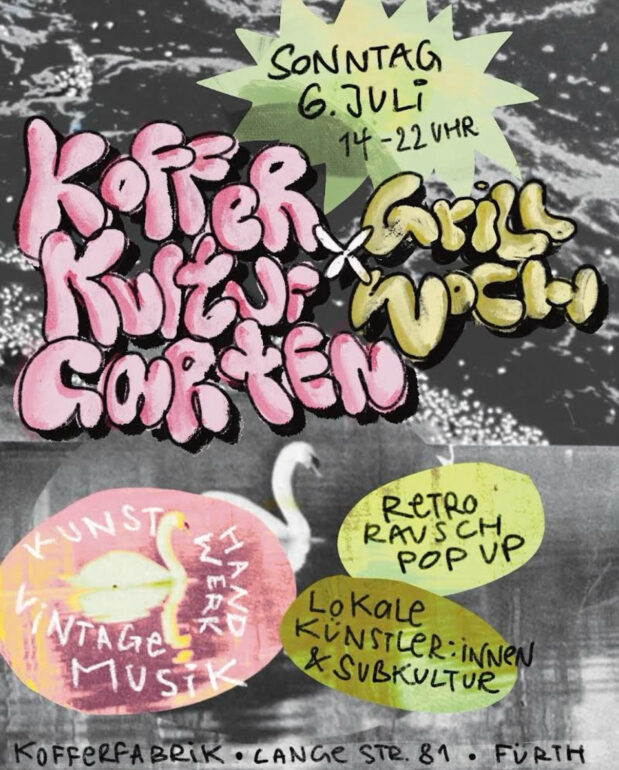 SONNTAG
6. JULI
14-22 UHR
KOFFER
KULTUR
GARTEN
x
GRILL
WOCH
KUNST
HAND
WERK
VINTAGE
MUSIK
RETRO
RAUSCH
POP UP
LOKALE
KÜNSTLER:INNEN
& SUBKULTUR
KOFFERFABRIK • LANGE STR. 81 • FÜRTH